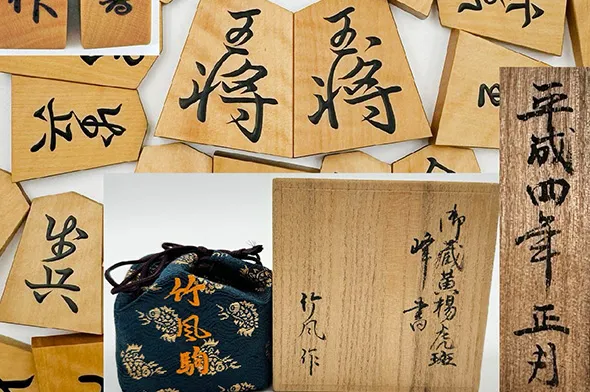 作
王将
玉将
歩兵
歩兵
竹風駒
御蔵黄楊虎斑
峰 書
竹風作
平成四年 正月